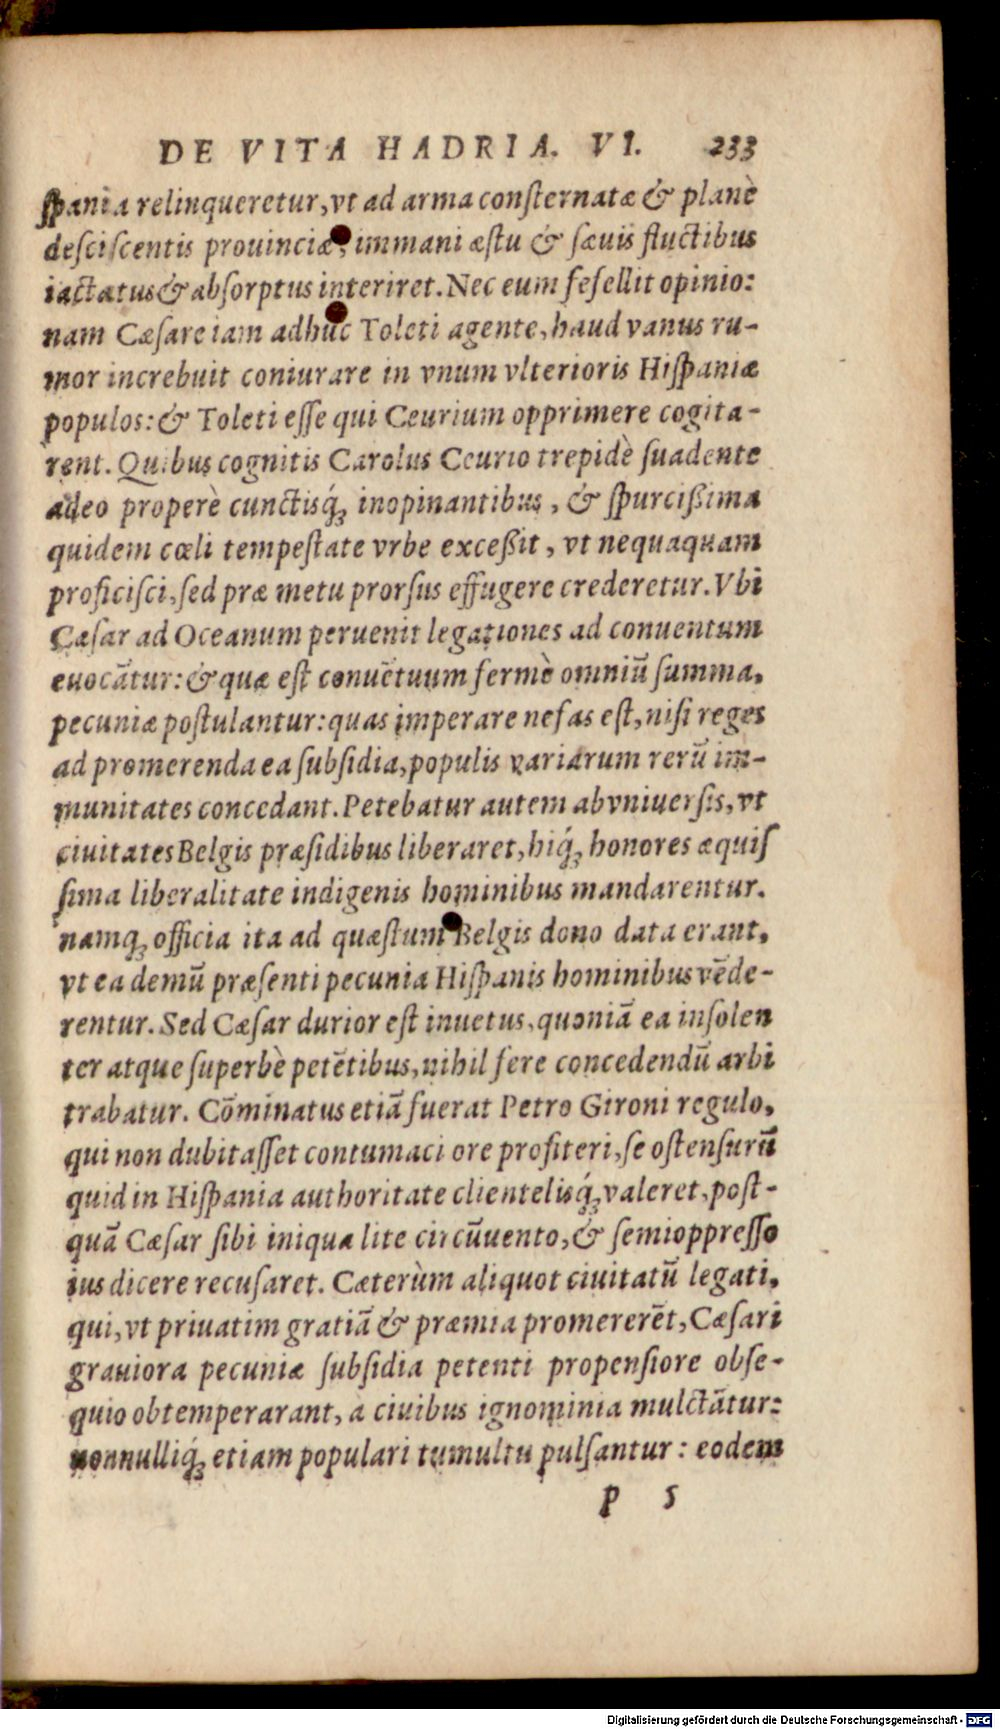 DE VITA HADRIA. VI. 233
ſpania relinqueretur, vt ad arma conſternatæ & planè
deſciſcentis prouinciæ, immani æſtu & ſæuis fluctibus
iactatus & abſorptus interiret. Nec eum fefellit opinio:
nam Cæſare iam adhuc Toleti agente, haud vanus ru-
mor increbuit coniurare in vnum vlterioris Hiſpaniæ
populos: & Toleti eſſe qui Ceurium opprimere cogita-
rent. Quibus cognitis Carolus Ceurio trepidè ſuadente
adeo properè cunctisq́ꝫ inopinantibus, & ſpurcißima
quidem cœli tempeſtate vrbe exceßit, vt nequaquam
proficiſci, ſed præ metu prorſus effugere crederetur. Vbi
Cæſar ad Oceanum peruenit legationes ad conuentum
euocãtur: & quæ eſt conuẽtuum fermè omniũ ſumma,
pecuniæ poſtulantur: quas imperare nefas eſt, niſi reges
ad promerenda ea ſubſidia, populis variarum rerũ im-
munitates concedant. Petebatur autem ab vniuerſis, vt
ciuitates Belgis præſidibus liberaret, hiq́ꝫ honores æquiſ
ſima liberalitate indigenis hominibus mandarentur.
namqꝫ officia ita ad quæſtum Belgis dono data erant,
vt ea demũ præſenti pecunia Hiſpanis hominibus vẽde-
rentur. Sed Cæſar durior eſt inuetus, quoniã ea inſolen
ter atque ſuperbè petẽtibus, nihil fere concedendũ arbi
trabatur. Cõminatus etiã fuerat Petro Gironi regulo,
qui non dubitaſſet contumaci ore profiteri, ſe oſtenſurũ
quid in Hiſpania authoritate clientelisq́ꝫ valeret, poſt-
quã Cæſar ſibi iniqua lite circũuento, & ſemioppreſſo
ius dicere recuſaret. Cæterùm aliquot ciuitatũ legati,
qui, vt priuatim gratiã & præmia promererẽt, Cæſari
grauiora pecuniæ ſubſidia petenti propenſiore obſe-
quio obtemperarant, à ciuibus ignominia mulctãtur:
nonnulliq́ꝫ etiam populari tumultu pulſantur: eodem
p 5
Digitalisierung gefördert durch die Deutsche Forschungsgemeinschaft - DFG